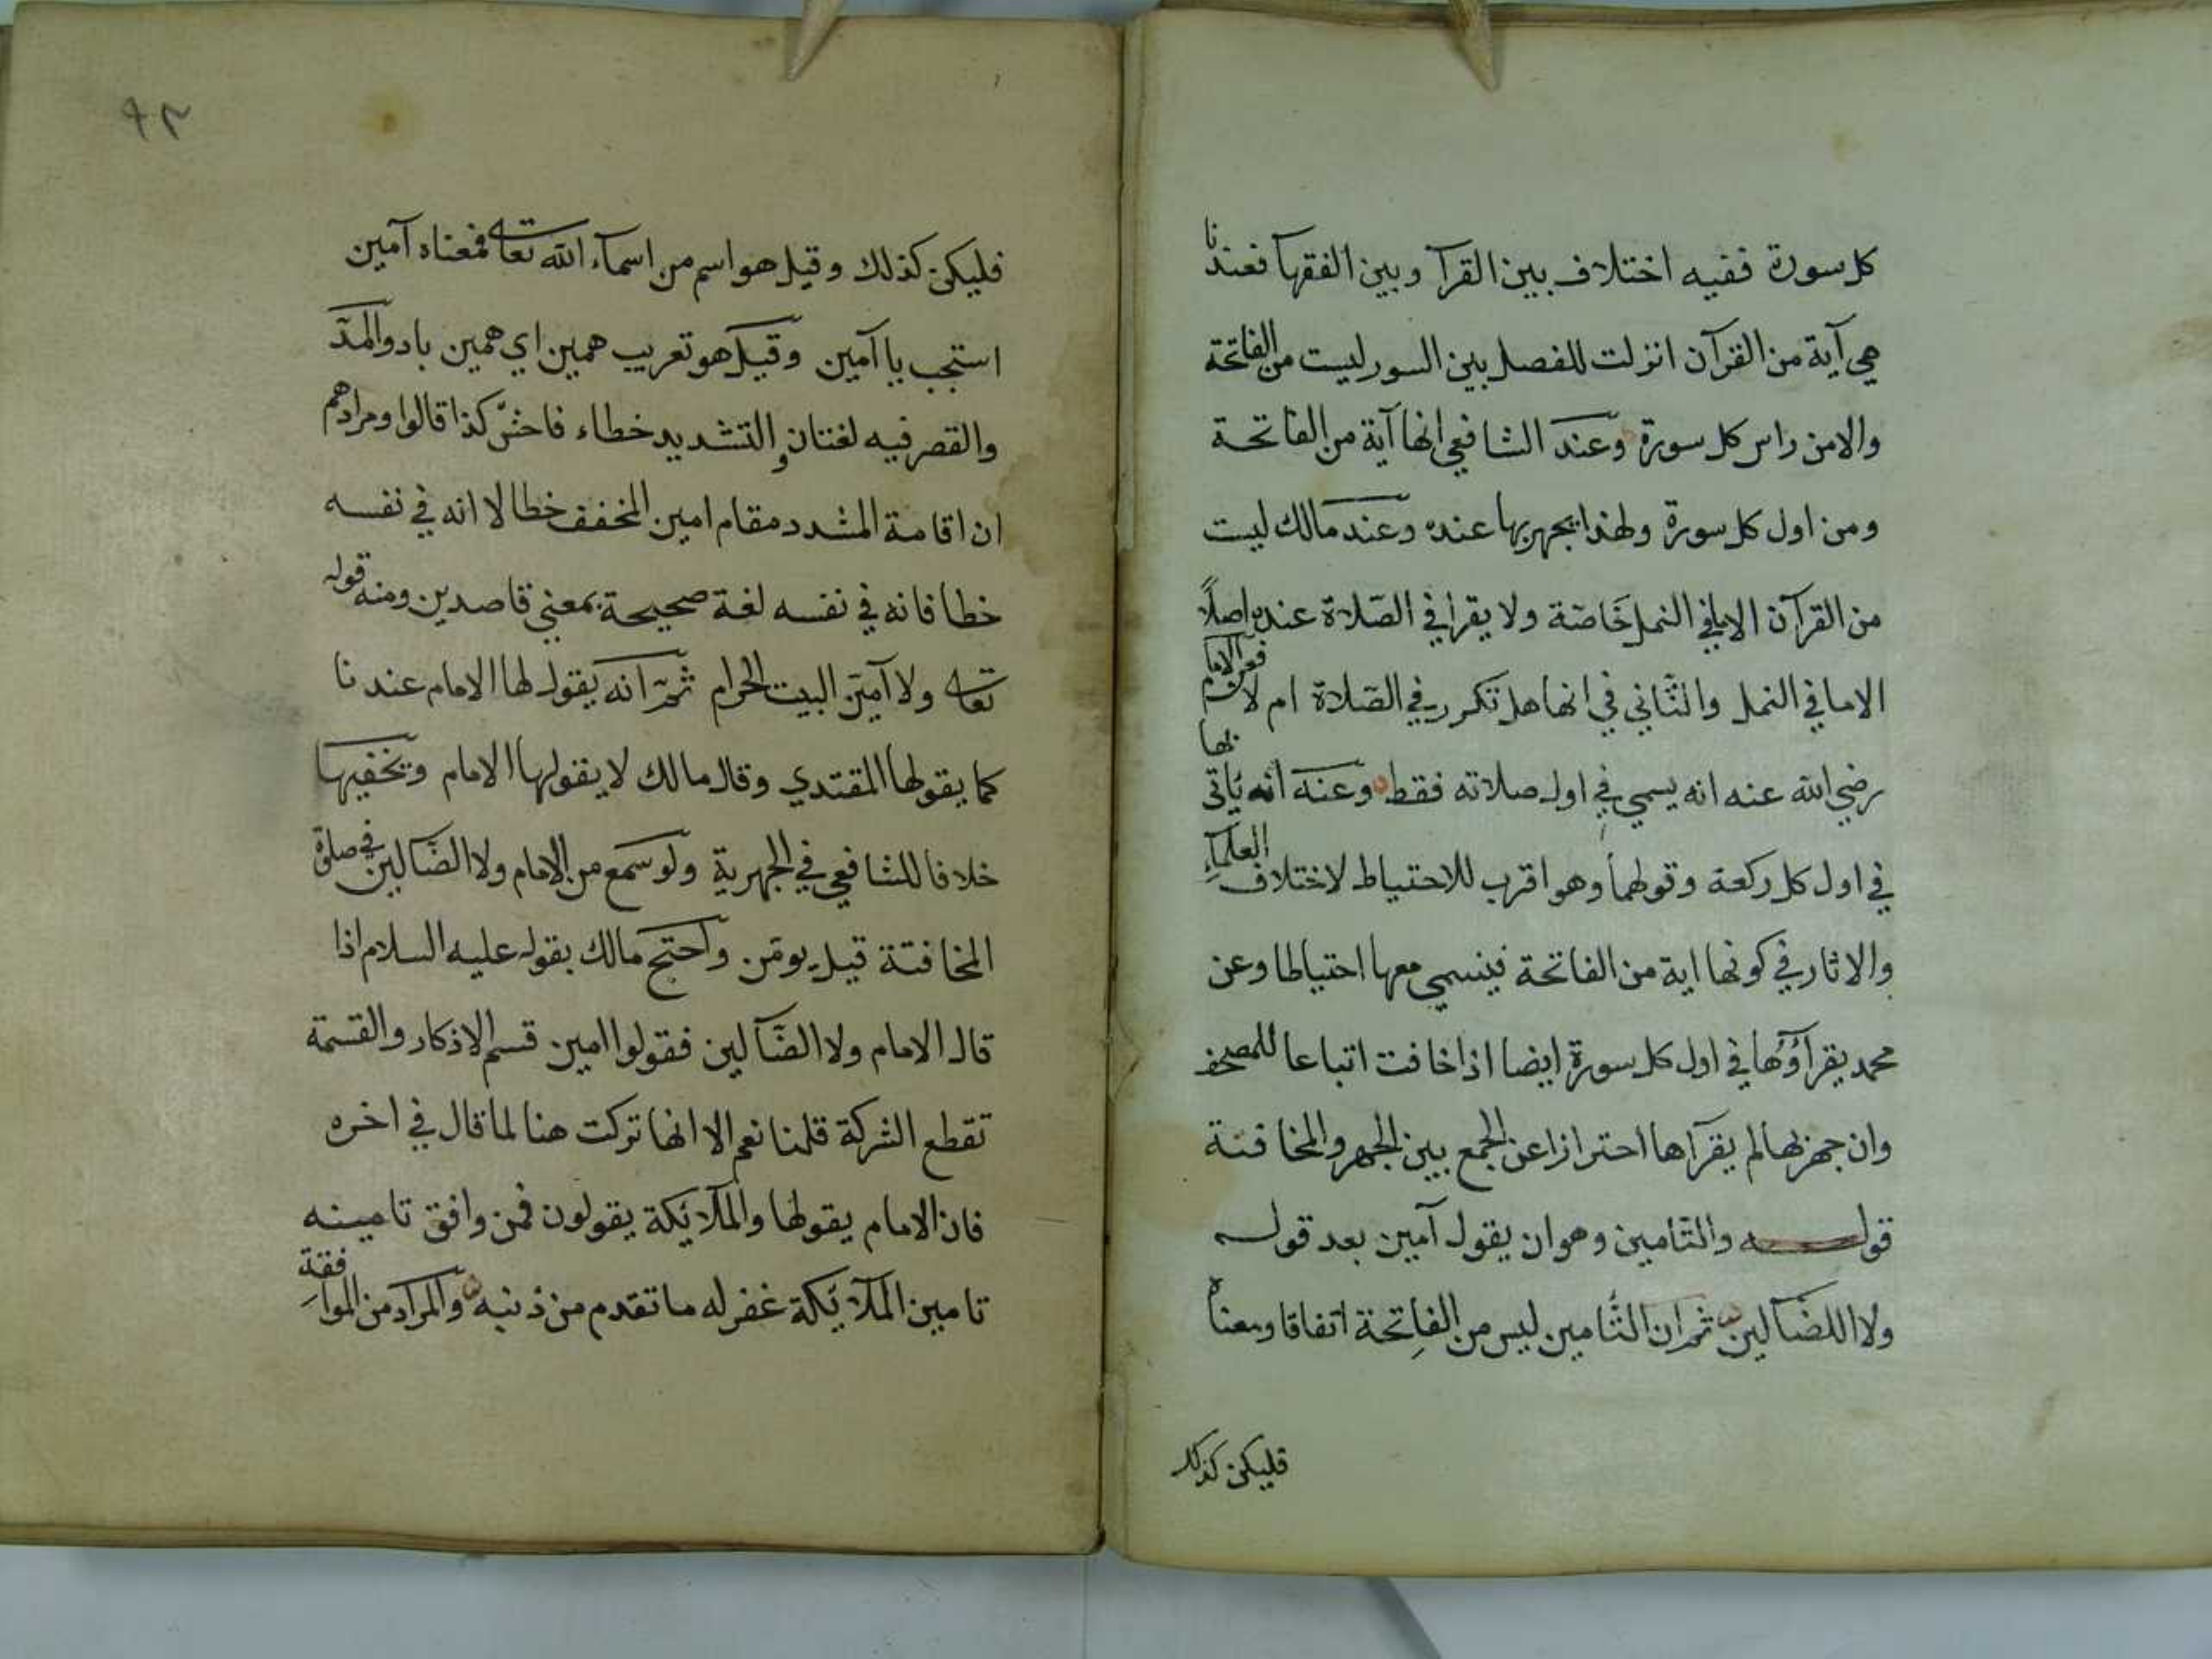 كل سورة ففيه اختلاف بين القرآ وبين الفقهآ فعندنا
هي آية من القرآن انزلت للفصل بين السور ليست من الفاتحة
والامن راس كل سورة وعند الشافعي انها آية من الفاتحة
ومن اول كل سورة ولهذا يجهر بها عنده وعند مالك ليست
من القرآن الا في النمل خاصة ولا يقرأ في الصلاة عنده اصلاً
الاما في النمل والثاني في انها هل تكرر في الصلاة ام لا فعن الامام
رضي الله عنه انه يسمي في اول صلاته فقط وعنه انه يأتي بها
في اول كل ركعة وقولهما وهو اقرب للاحتياط لاختلاف العلماء
والاثار في كونها اية من الفاتحة فيسمي معها احتياطا وعن
محمد يقرأؤها في اول كل سورة ايضا اذا خافت اتباعا للمصحف
وان جهر بها لم يقرآها احترازا عن الجمع بين الجهر والمخافتة
قوله والتامين وهو ان يقول آمين بعد قوله
ولا اللضآلين ثم ان التامين ليس من الفاتحة اتفاقا ومعناه
فليكن كذلك
٩٣
فليكن كذلك وقيل هو اسم من اسمآء الله تعالى فمعناه آمين
استجب يا آمين وقيل هو تعريب همين اي همين باد والمدّ
والقصر فيه لغتان والتشديد خطاء فاحش كذا قالوا ومرادهم
ان اقامة المشدد مقام امين المخفف خطا لا انه في نفسه
خطا فانه في نفسه لغة صحيحة بمعني قاصدين ومنه قوله
تعالى ولا آمين البيت الحرام ثم انه يقول لها الامام عندنا
كما يقولها المقتدي وقال مالك لا يقولها الامام ويخفيها
خلافا للشافعي في الجهرية ولو سمع من الامام ولا الضآلين في صلوة
المخافتة قيل يومن واحتج مالك بقوله عليه السلام اذا
قال الامام ولا الضآلين فقولوا امين قسم الاذكار والقسمة
تقطع الشركة قلنا نعم الا انها تركت هنا لما قال في اخره
فان الامام يقولها والملآئكة يقولون فمن وافق تامينه
تامين الملآئكة غفر له ما تقدم من ذنبه والمراد من الموافقة